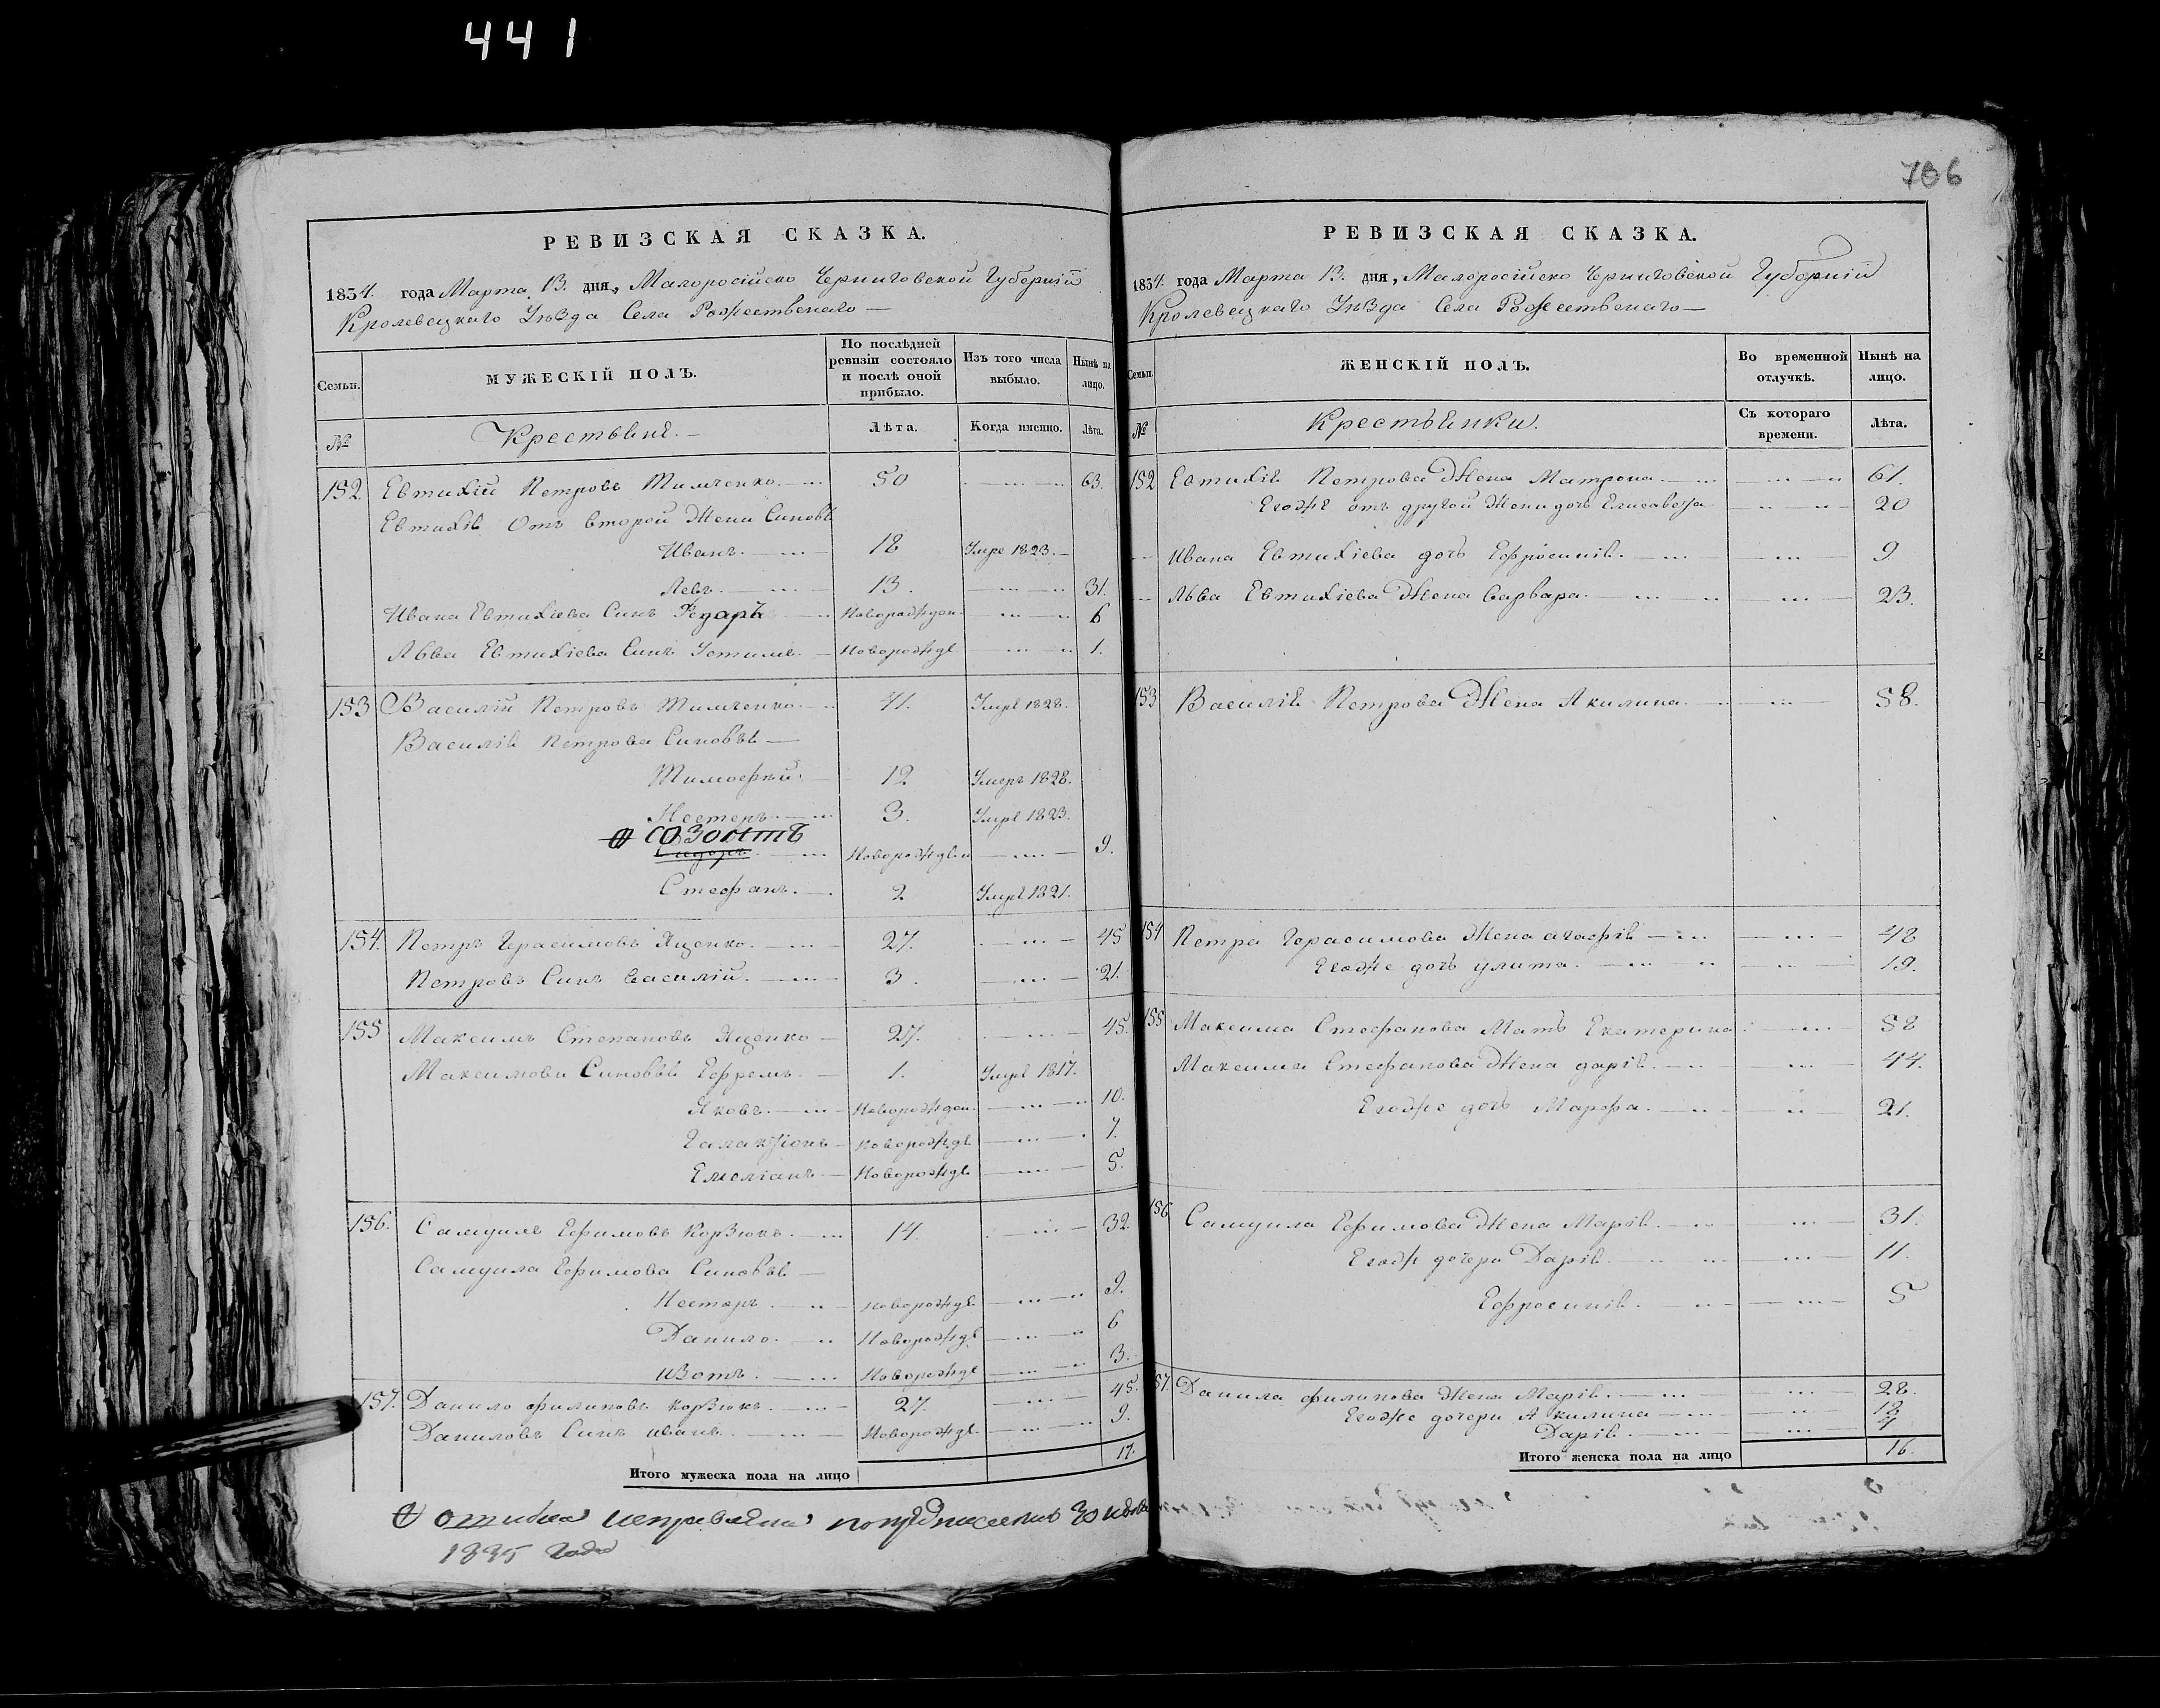 441
706
РЕВИЗСКАЯ СКАЗКА.
1834. года Марта 13. дня, Малоросійско Черниговской Губерній
Кролевецкаго Уѣзда Села Рождественаго —
Семьи. МУЖЕСКІЙ ПОЛЪ. По послѣдней ревизіи состояло и послѣ оной прибыло. Изъ того числа выбыло. Нынѣ на лицо.
№ Крестьяне. Лѣта. Когда именно. Лѣта.
152 Евтихій Петровъ Тимченко. 50 63.
Евтихія Отъ второй Жени Синовѣ
Иванъ. 18 Умре 1823.
Левъ. 13. 31.
Ивана Евтихіева Синъ Федоръ Новорожден. 6
Льва Евтихіева Синъ Устимъ. Новорожде 1.
153 Василій Петровъ Тимченко. 41. Умре 1828.
Василія Петрова Синовья —
Тимофѣй. 12 Умеръ 1828.
Нестеръ. 3. Умре 1823.
Созонтъ
Сидоръ. Новорожден 9.
Стефанъ. 2 Умре 1821.
154. Петръ Герасимовъ Яценко. 27. 45
Петровъ Синъ Василій. 3. 21.
155 Максимъ Степановъ Яценко 27. 45.
Максимови Синовья Ефремъ. 1. Умре 1817.
Яковъ. Новорожден. 10.
Галактіонъ Новорожде 7.
Емеліанъ Новорожде 5.
156. Самуилъ Ефимовъ Корзюкъ. 14. 32.
Самуила Ефимова Синовья —
Нестеръ. Новорожде 9.
Данило. Новорожде 6
Изотъ. Новорожде 3.
157. Данило Филиповъ Корзюкъ. 27. 45.
Даниловъ Синъ Иванъ. Новорожде 9.
Итого мужеска пола на лицо 17.
ошибка исправлена
1835 года
РЕВИЗСКАЯ СКАЗКА.
1834. года Марта 13. дня, Малоросійско Черниговской Губерній
Кролевецкаго Уѣзда Села Рожественаго —
Семьи. ЖЕНСКІЙ ПОЛЪ. Во временной отлучкѣ. Нынѣ на лицо.
№ Крестьянки. Съ котораго времени. Лѣта.
152 Евтихія Петрова Жена Матрона 61.
Егоже отъ другой Жени дочь Елисавета 20
Ивана Евтихіева дочь Ефросинія. 9
Льва Евтихіева Жена Варвара. 23.
153 Василія Петрова Жена Акилина. 58.
154 Петра Герасимова Жена Агафія 48
Егоже дочь Улита. 19.
155 Максима Стефанова Мать Екатерина 58
Максима Стефанова Жена Дарія. 44.
Егоже дочь Марфа. 21.
156 Самуила Ефимова Жена Марія. 31.
Егож дочери Дарія 11.
Ефросинія. 5
157. Данила Филипова Жена Марія. 28.
Егоже дочери Акилина 12
Дарія. 7
Итого женска пола на лицо 16.